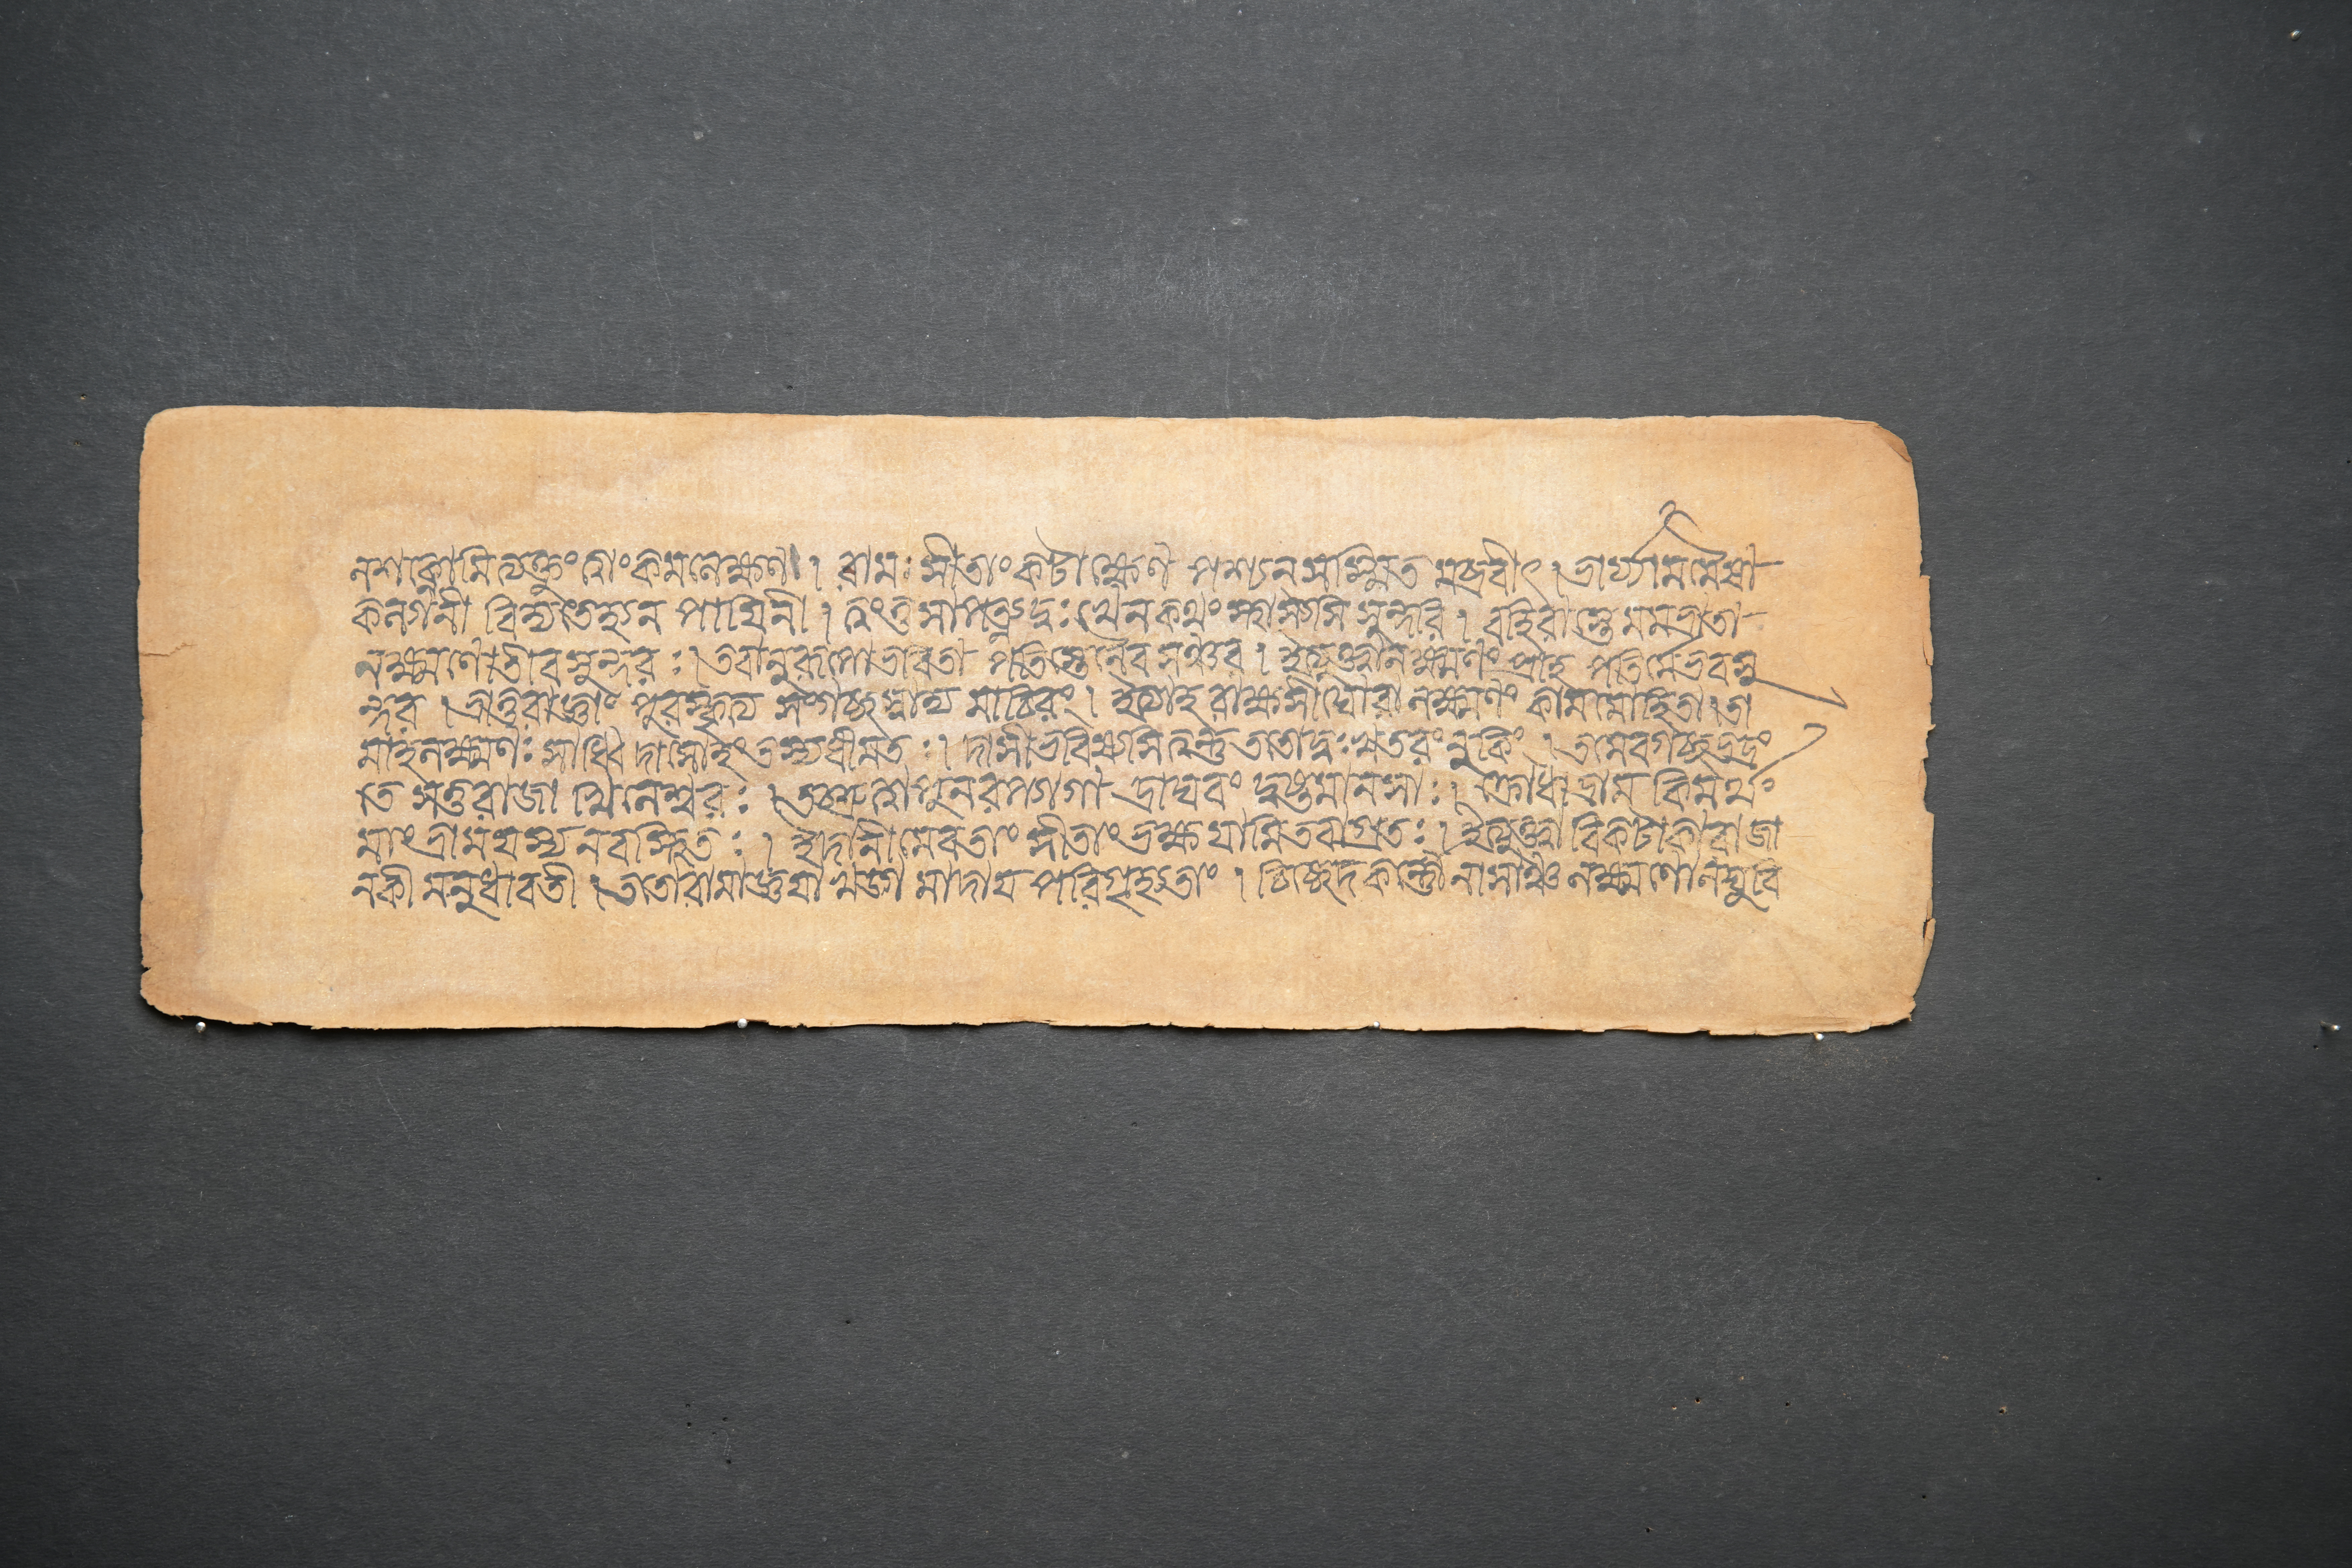 নশক্নোমিত্যক্তুং ত্বাং কমলেক্ষণ। রামঃ সীতাং কটাক্ষেণ পশ্যন সস্মিত মব্রবীৎ। ভার্য্যা মমৈষা
কল্যাণী বিদ্যতেহ্যন পায়িনী। ত্বংতু সাপত্ন্যদুঃখেন কথং স্থাস্যসি সুন্দরি। বহিরাস্তে মমভ্রাতা
লক্ষ্মণোতীব সুন্দরঃ। তবানুরূপোভবিতা পতিস্তেনৈব সঞ্চর। ইত্যুক্তা লক্ষ্মণং প্রাহ পতির্মেভব সু
ন্দর। ভ্রাতুরাজ্ঞাং পুরস্কৃত্য সংগচ্ছাবোদ্য মাচিরং। ইত্যাহ রাক্ষসীঘোরা লক্ষ্মণং কামমোহিতা। তা
মাহ লক্ষ্মণঃ সাধ্বি দাসোহং তস্য ধীমতঃ। দাসীভবিষ্যসি ত্বন্তু ততোদুঃখতরং নুকিং। তমেবগচ্ছ ভদ্রং
তে সতুরাজা খিলেশ্বরঃ। তচ্ছ্রুত্বা পুনরপ্যাগা দ্রাঘবং দুষ্টমানসাঃ। ক্রোধাদ্রাম কিমর্থং
মাং ভ্রাময়স্য নবস্থিতঃ। ইদানীমেবতাং সীতাং ভক্ষয়ামি তবাগ্রতঃ। ইত্যুক্ত্বা বিকটাকারা জা
নকী মনুধাবতী। ততোরামাজ্ঞয়া খড়্গ মাদায় পরিগৃহ্যতাং। চিচ্ছেদ কর্ণৌ নাসাঞ্চ লক্ষ্মণোলঘুবি